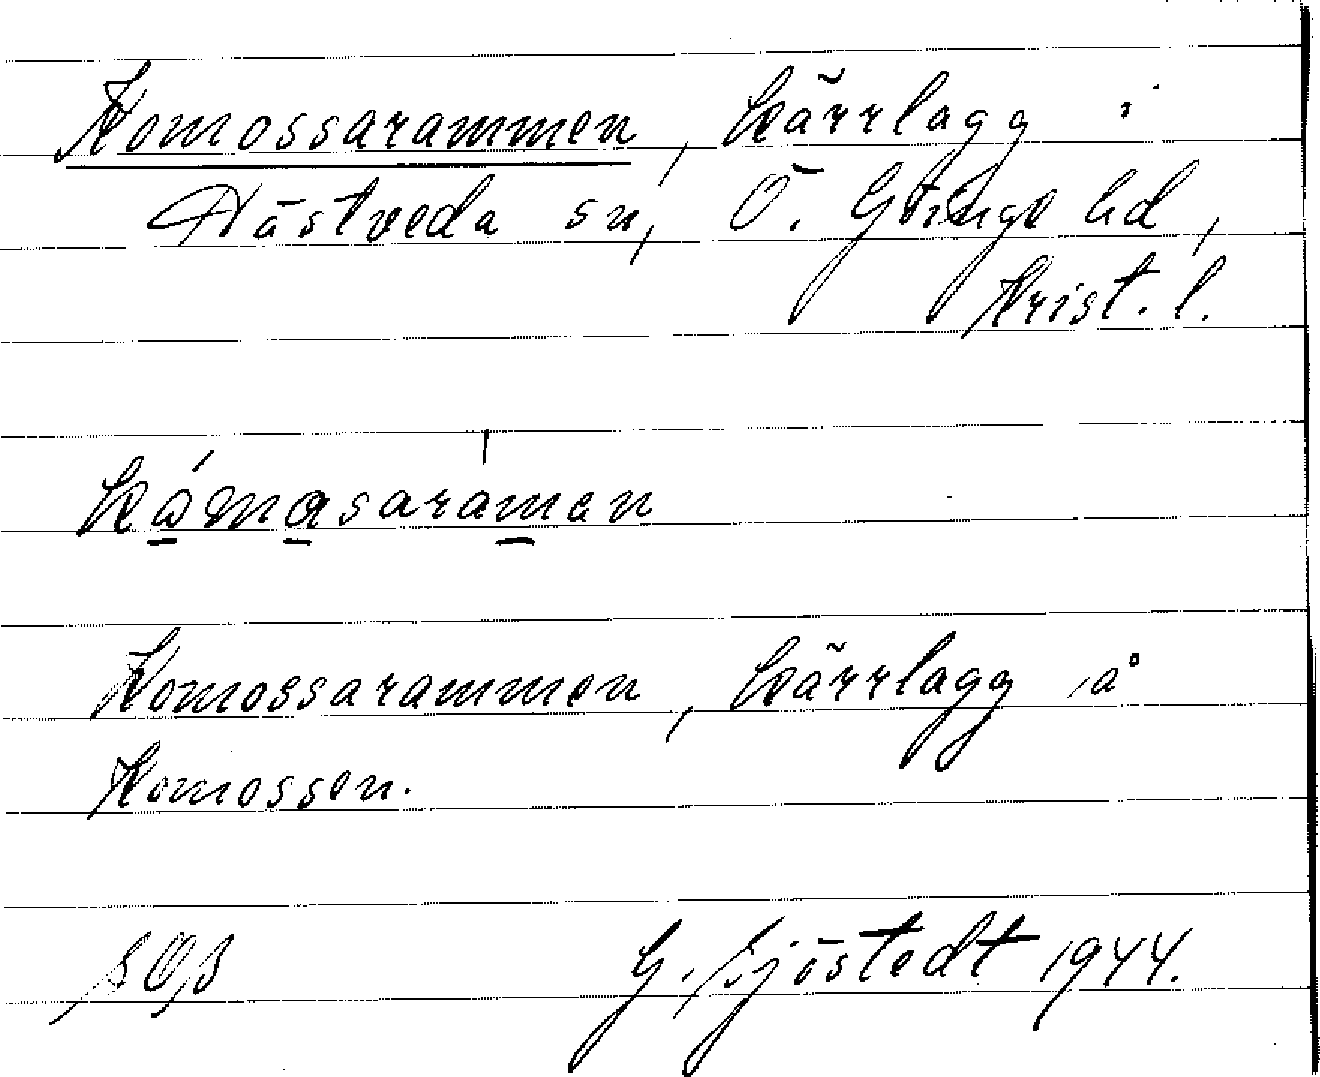 Komossarammen, kärrlagg i
Hästveda sn, Ö. Göinge hd,
Krist. l.
kómasaramen
Komossarammen, kärrlagg å
Komossen.
G. Sjöstedt 1944.